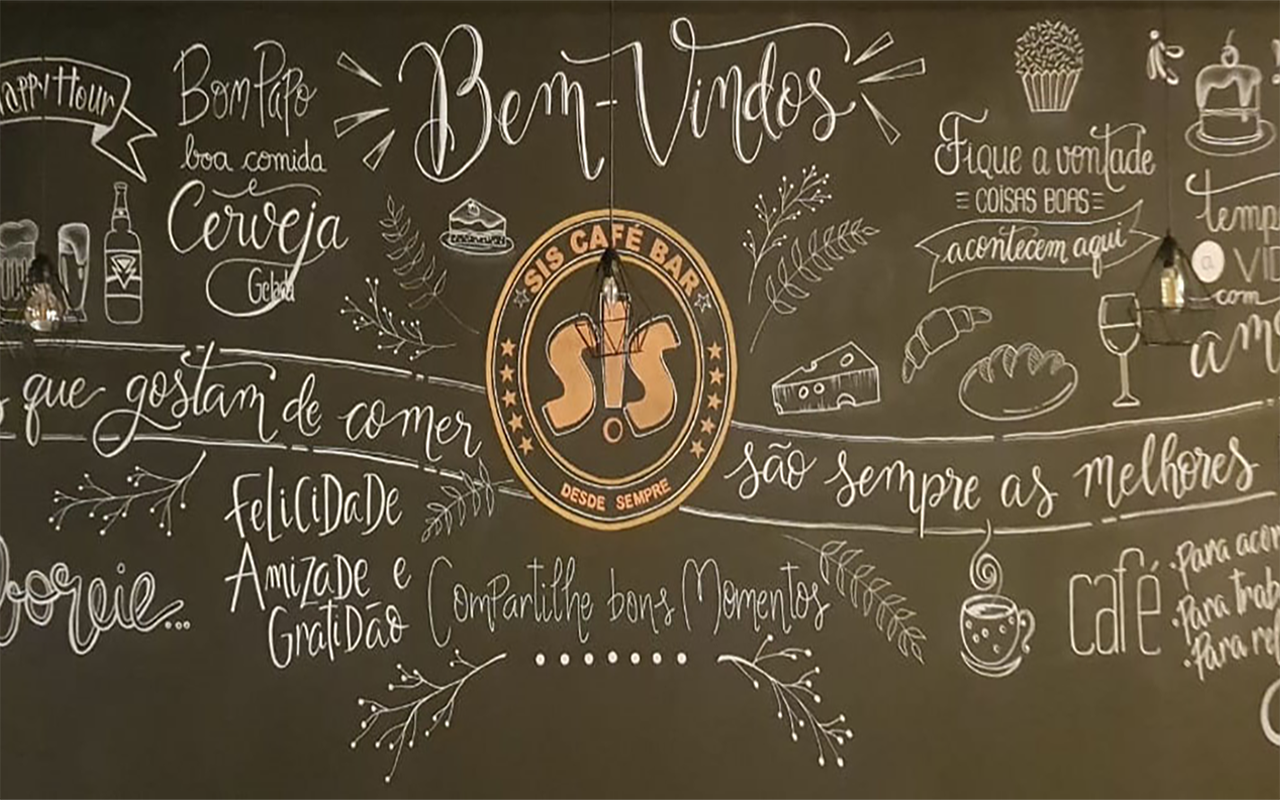 Bem-Vindos
Bom Papo
boa comida
e
Cerveja
Gelada
Fique a vontade
COISAS BOAS
acontecem aqui
a
com
SIS CAFÉ BAR
SIS
DESDE SEMPRE
que gostam de comer
são sempre as melhores
FELICIDADE
AMIZADE e
GRATIDÃO
Compartilhe bons Momentos
café
Para
Para
Para